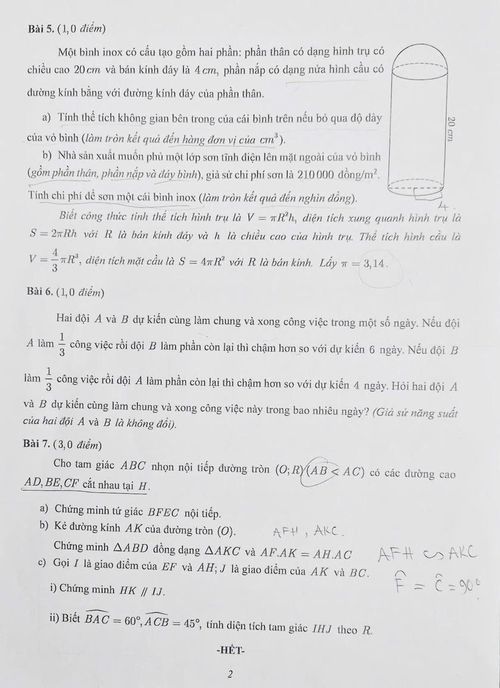 Bài 5. (1,0 điểm)
Một bình inox có cấu tạo gồm hai phần: phần thân có dạng hình trụ có
chiều cao 20 cm và bán kính đáy là 4 cm, phần nắp có dạng nửa hình cầu có
đường kính bằng với đường kính đáy của phần thân.
a) Tính thể tích không gian bên trong của cái bình trên nếu bỏ qua độ dày
của vỏ bình (làm tròn kết quả đến hàng đơn vị của cm³).
b) Nhà sản xuất muốn phủ một lớp sơn tĩnh điện lên mặt ngoài của vỏ bình
(gồm phần thân, phần nắp và đáy bình), giả sử chi phí sơn là 210 000 đồng/m².
Tính chi phí để sơn một cái bình inox (làm tròn kết quả đến nghìn đồng).
20 cm
4
Biết công thức tính thể tích hình trụ là V = πR²h, diện tích xung quanh hình trụ là
S = 2πRh với R là bán kính đáy và h là chiều cao của hình trụ. Thể tích hình cầu là
V = 4/3 πR³, diện tích mặt cầu là S = 4πR² với R là bán kính. Lấy π = 3,14.
Bài 6. (1,0 điểm)
Hai đội A và B dự kiến cùng làm chung và xong công việc trong một số ngày. Nếu đội
A làm 1/3 công việc rồi đội B làm phần còn lại thì chậm hơn so với dự kiến 6 ngày. Nếu đội B
làm 1/3 công việc rồi đội A làm phần còn lại thì chậm hơn so với dự kiến 4 ngày. Hỏi hai đội A
và B dự kiến cùng làm chung và xong công việc này trong bao nhiêu ngày? (Giả sử năng suất
của hai đội A và B là không đổi).
Bài 7. (3,0 điểm)
Cho tam giác ABC nhọn nội tiếp đường tròn (O;R) (AB < AC) có các đường cao
AD, BE, CF cắt nhau tại H.
a) Chứng minh tứ giác BFEC nội tiếp.
b) Kẻ đường kính AK của đường tròn (O).
AFH, AKC.
Chứng minh ΔABD đồng dạng ΔAKC và AF.AK = AH.AC
AFH ∽ AKC
c) Gọi I là giao điểm của EF và AH; J là giao điểm của AK và BC.
F̂ = Ĉ = 90°
i) Chứng minh HK // IJ.
ii) Biết B̂AC = 60°, ÂCB = 45°, tính diện tích tam giác IHJ theo R.
-HẾT-
2